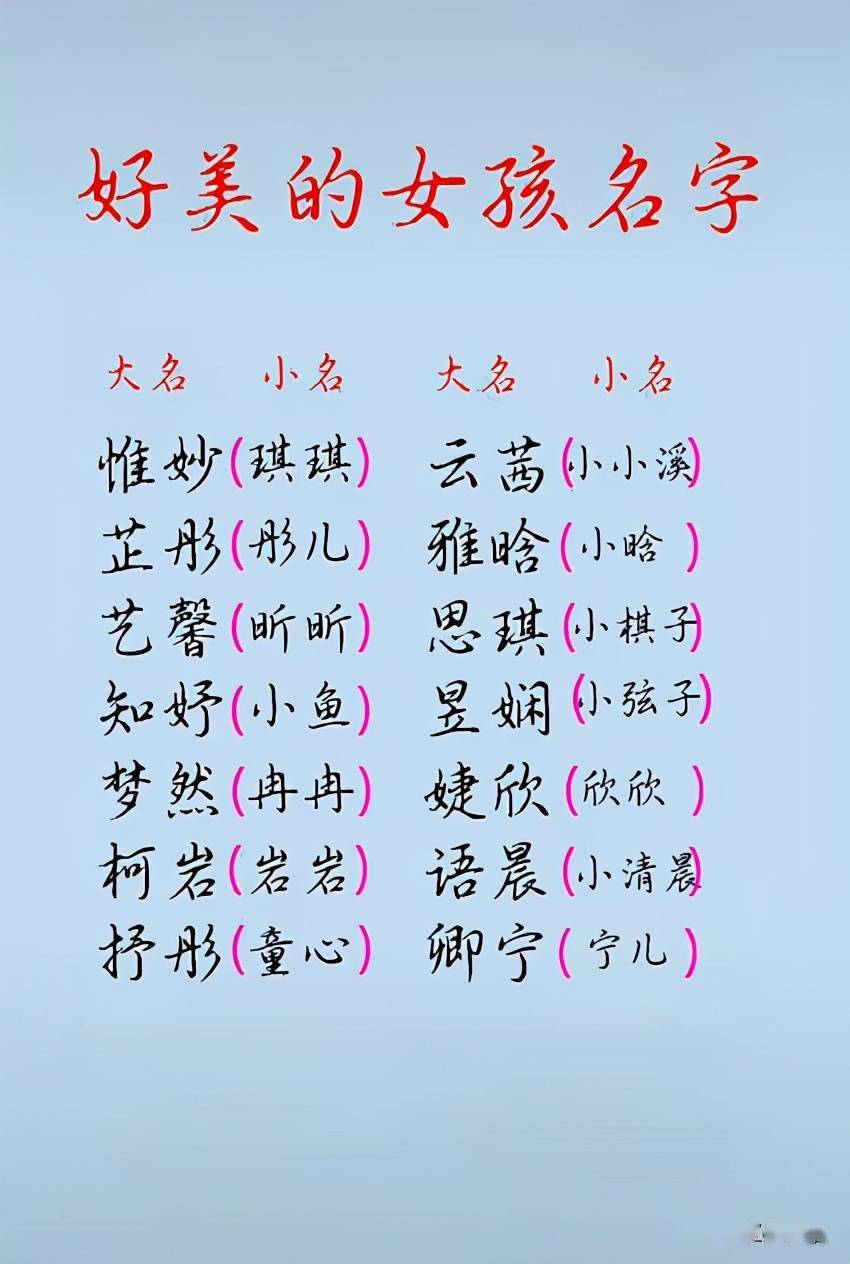 好美的女孩名字
大名 小名 大名 小名
惟妙(琪琪) 云茜(小小溪)
芷彤(彤儿) 雅晗(小晗)
艺馨(昕昕) 思琪(小棋子)
知妤(小鱼) 昱娴(小弦子)
梦然(冉冉) 婕欣(欣欣)
柯岩(岩岩) 语晨(小清晨)
抒彤(童心) 卿宁(宁儿)